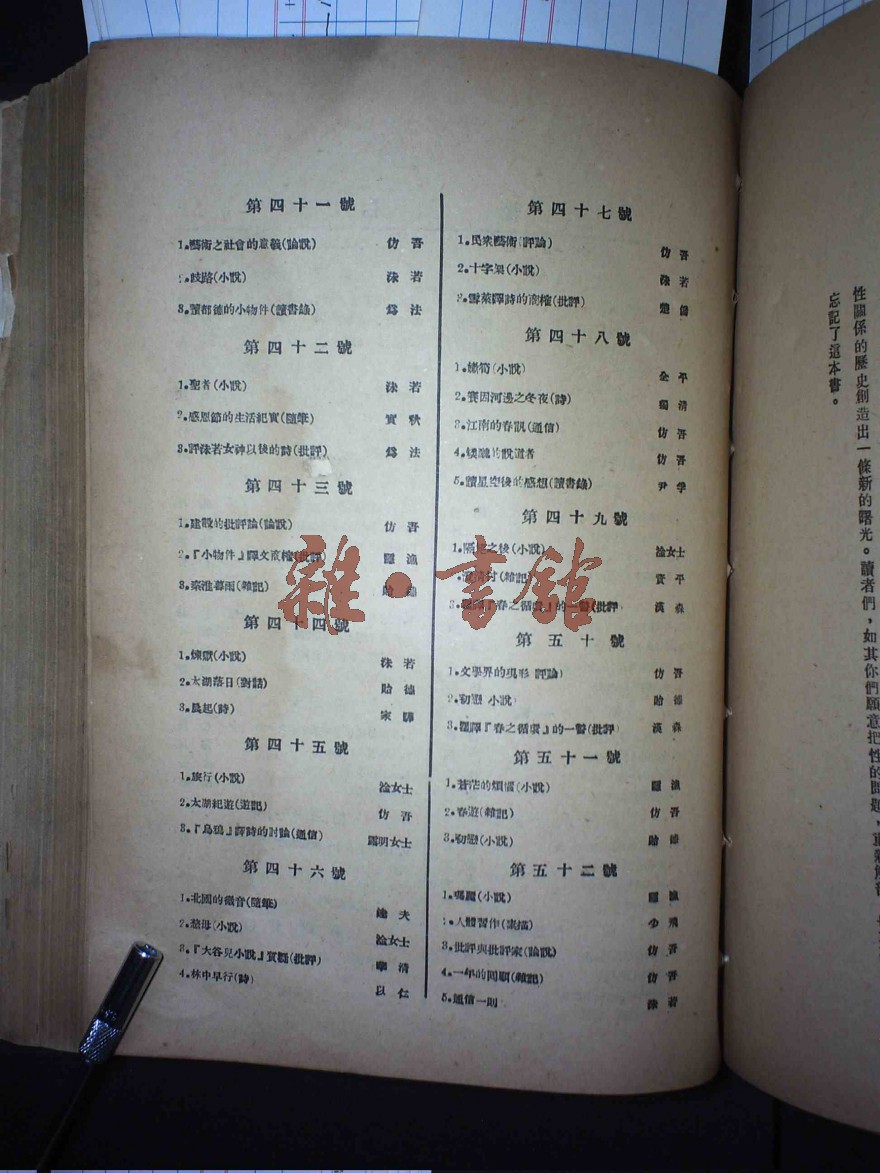 第四十一號
1.藝術之社會的意義(論說) 仿吾
2.歧路(小說) 沫若
3.讀都德的小物件(讀書錄) 爲法
第四十二號
1.聖者(小說) 沫若
2.感恩節的生活紀實(隨筆) 實秋
3.評沫若女神以後的詩(批評) 爲法
第四十三號
1.建設的批評論(論說) 仿吾
2.『小物件』譯文商榷(批評) 隱漁
3.秦淮暮雨(雜記) 貽德
第四十四號
1.煉獄(小說) 沫若
2.太湖落日(對話) 貽德
3.晨起(詩) 家驊
第四十五號
1.旅行(小說) 淦女士
2.太湖紀遊(遊記) 仿吾
3.『烏鴉』譯詩的討論(通信) 露明女士
第四十六號
1.北國的微音(隨筆) 達夫
2.慈母(小說) 淦女士
3.『大谷兒小說』質疑(批評) 華清
4.林中早行(詩) 以仁
第四十七號
1.民衆藝術(評論) 仿吾
2.十字架(小說) 沫若
3.雪萊譯詩的商榷(批評)
第四十八號
1.綠筍(小說) 全平
2.賽因河邊之冬夜(詩) 獨清
3.江南的春訊(通信) 仿吾
4.矮醜的說道者 仿吾
5.讀星空後的感想(讀書錄) 尹學
第四十九號
1.隔絕之後(小說) 淦女士
(雜記) 資平
3.羅譯『春之循環』的一瞥(批評) 漢森
第五十號
1.文學界的現形 評論) 仿吾
2.初戀 小說) 貽德
3.羅譯『春之循環』的一瞥(批評) 漢森
第五十一號
1.蒼茫的煩惱(小說) 隱漁
2.春遊(雜記) 仿吾
3.初戀(小說) 貽德
第五十二號
1.瑪麗(小說) 隱漁
2.人體習作(素描) 少飛
3.批評與批評家(論說) 仿吾
4.一年的回顧(雜記) 仿吾
5.通信一則 沫若
性關係的歷史創造出一條新的曙光。讀者們，如其你們願意把性的問題，重新解部
忘記了這本書。
雜·書館